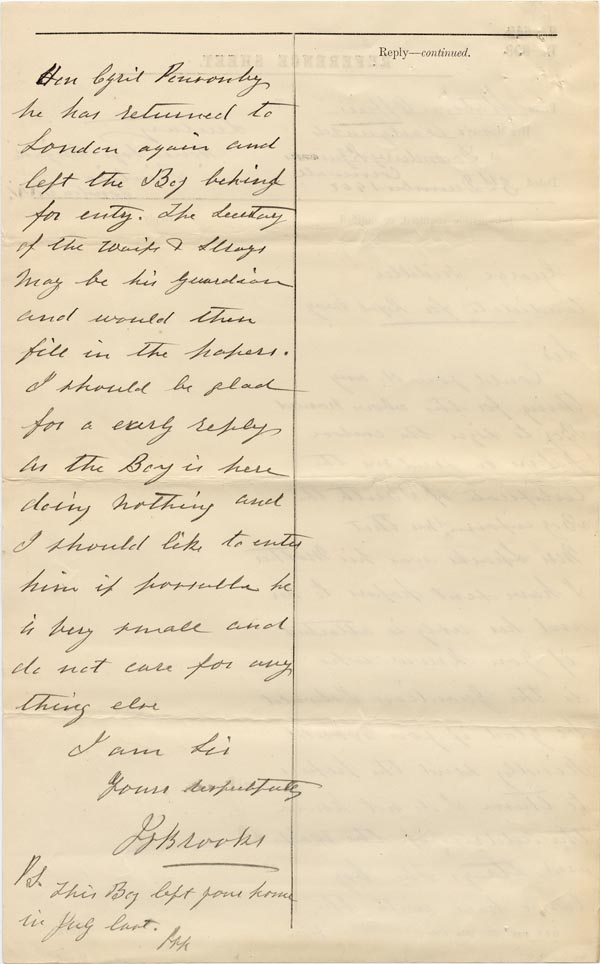 Reply—continued.
Hon Cyril Ponsonby
he has returned to
London again and
left the Boy behind
for entry. The Secretary
of the Waifs & Strays
May be his Guardian
and would then
fill in the papers.
I should be glad
for a early reply
as the Boy is here
doing nothing and
I should like to enter
him if possible he
is very small and
do not care for any
thing else
I am Sir
Yours respectfully
Brooks
P.S. This Boy left your home
in July last.